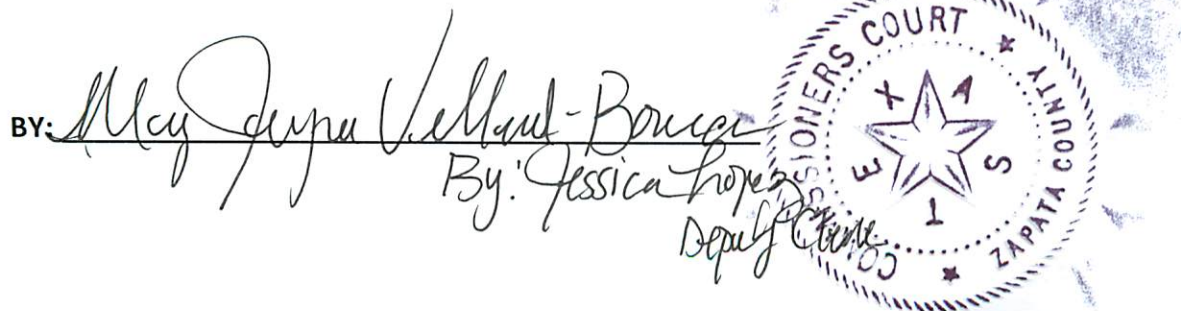 BY: Mary Jayne Villarreal-Bonoan
By: Jessica Lopez
Deputy Clerk
COMMISSIONERS COURT
ZAPATA COUNTY
TEXAS